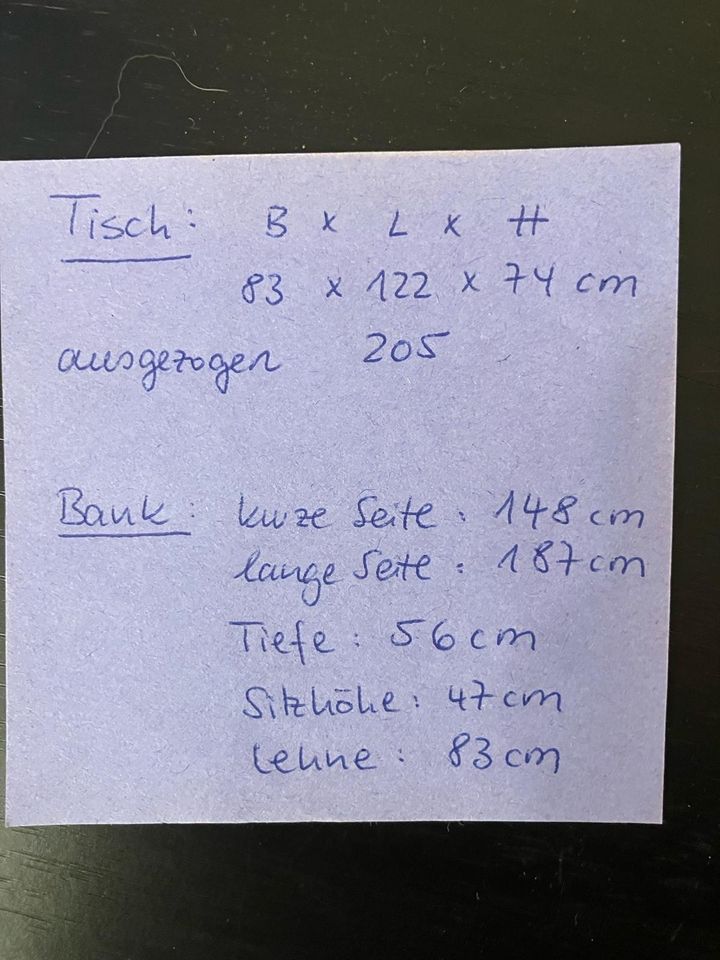 Tisch: B x L x H
83 x 122 x 74 cm
ausgezogen 205
Bank: kurze Seite: 148 cm
lange Seite: 187 cm
Tiefe: 56 cm
Sitzhöhe: 47 cm
Lehne: 83 cm